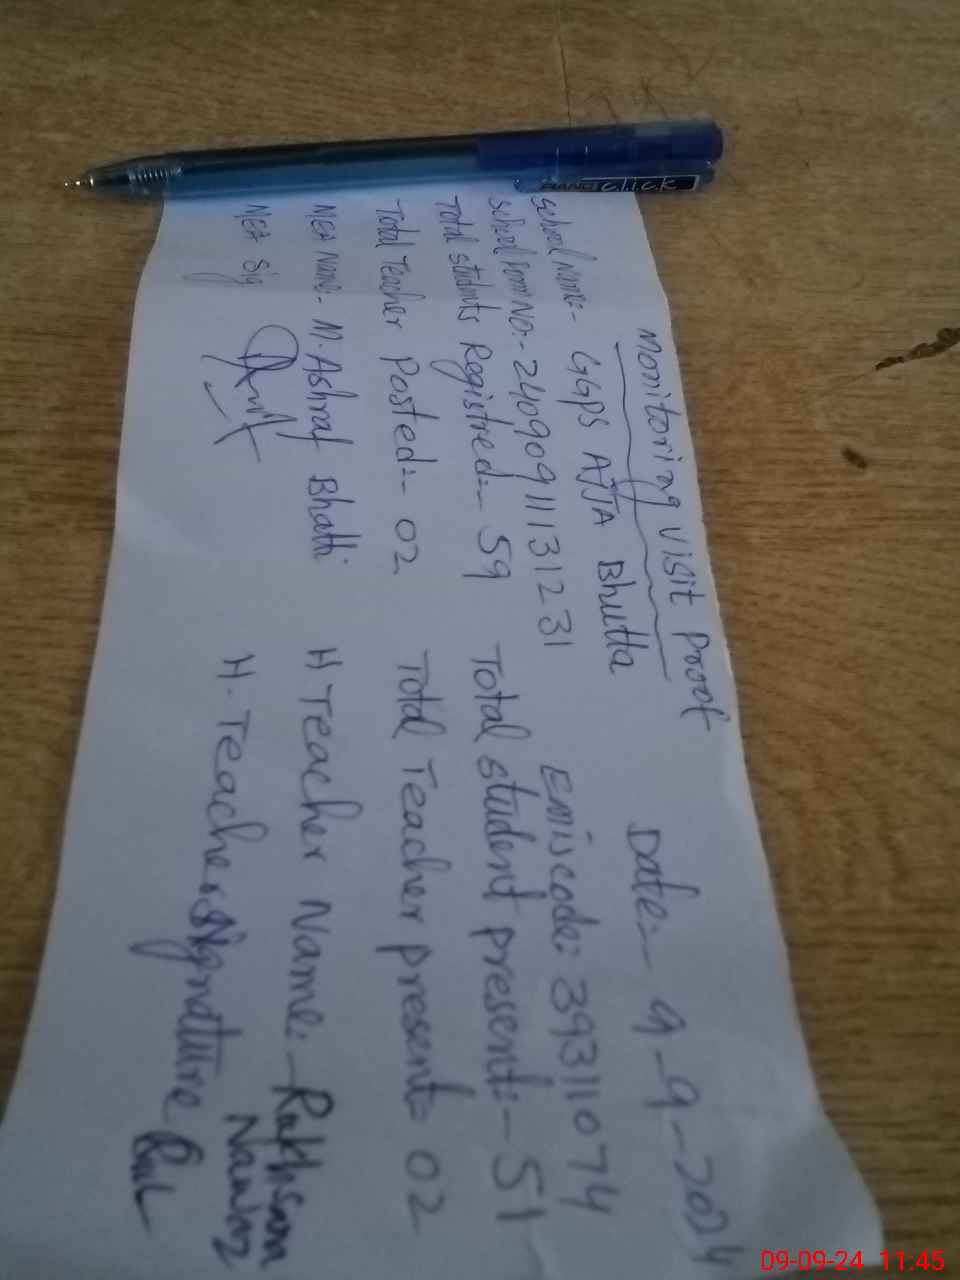 Monitoring visit Proof
Date:- 9-9-2024
School Name:- GGPS AJJA Bhutta
School Form No:- 24090911131231 Emis code: 39311074
Total students Registred:- 59 Total student present:- 51
Total Teacher Posted:- 02 Total Teacher present= 02
MEA Name:- M. Ashraf Bhatti H Teacher Name:- Rukhsana Nawaz
MEA Sig H. Teacher Signature
PIANO click
09-09-24 11:45